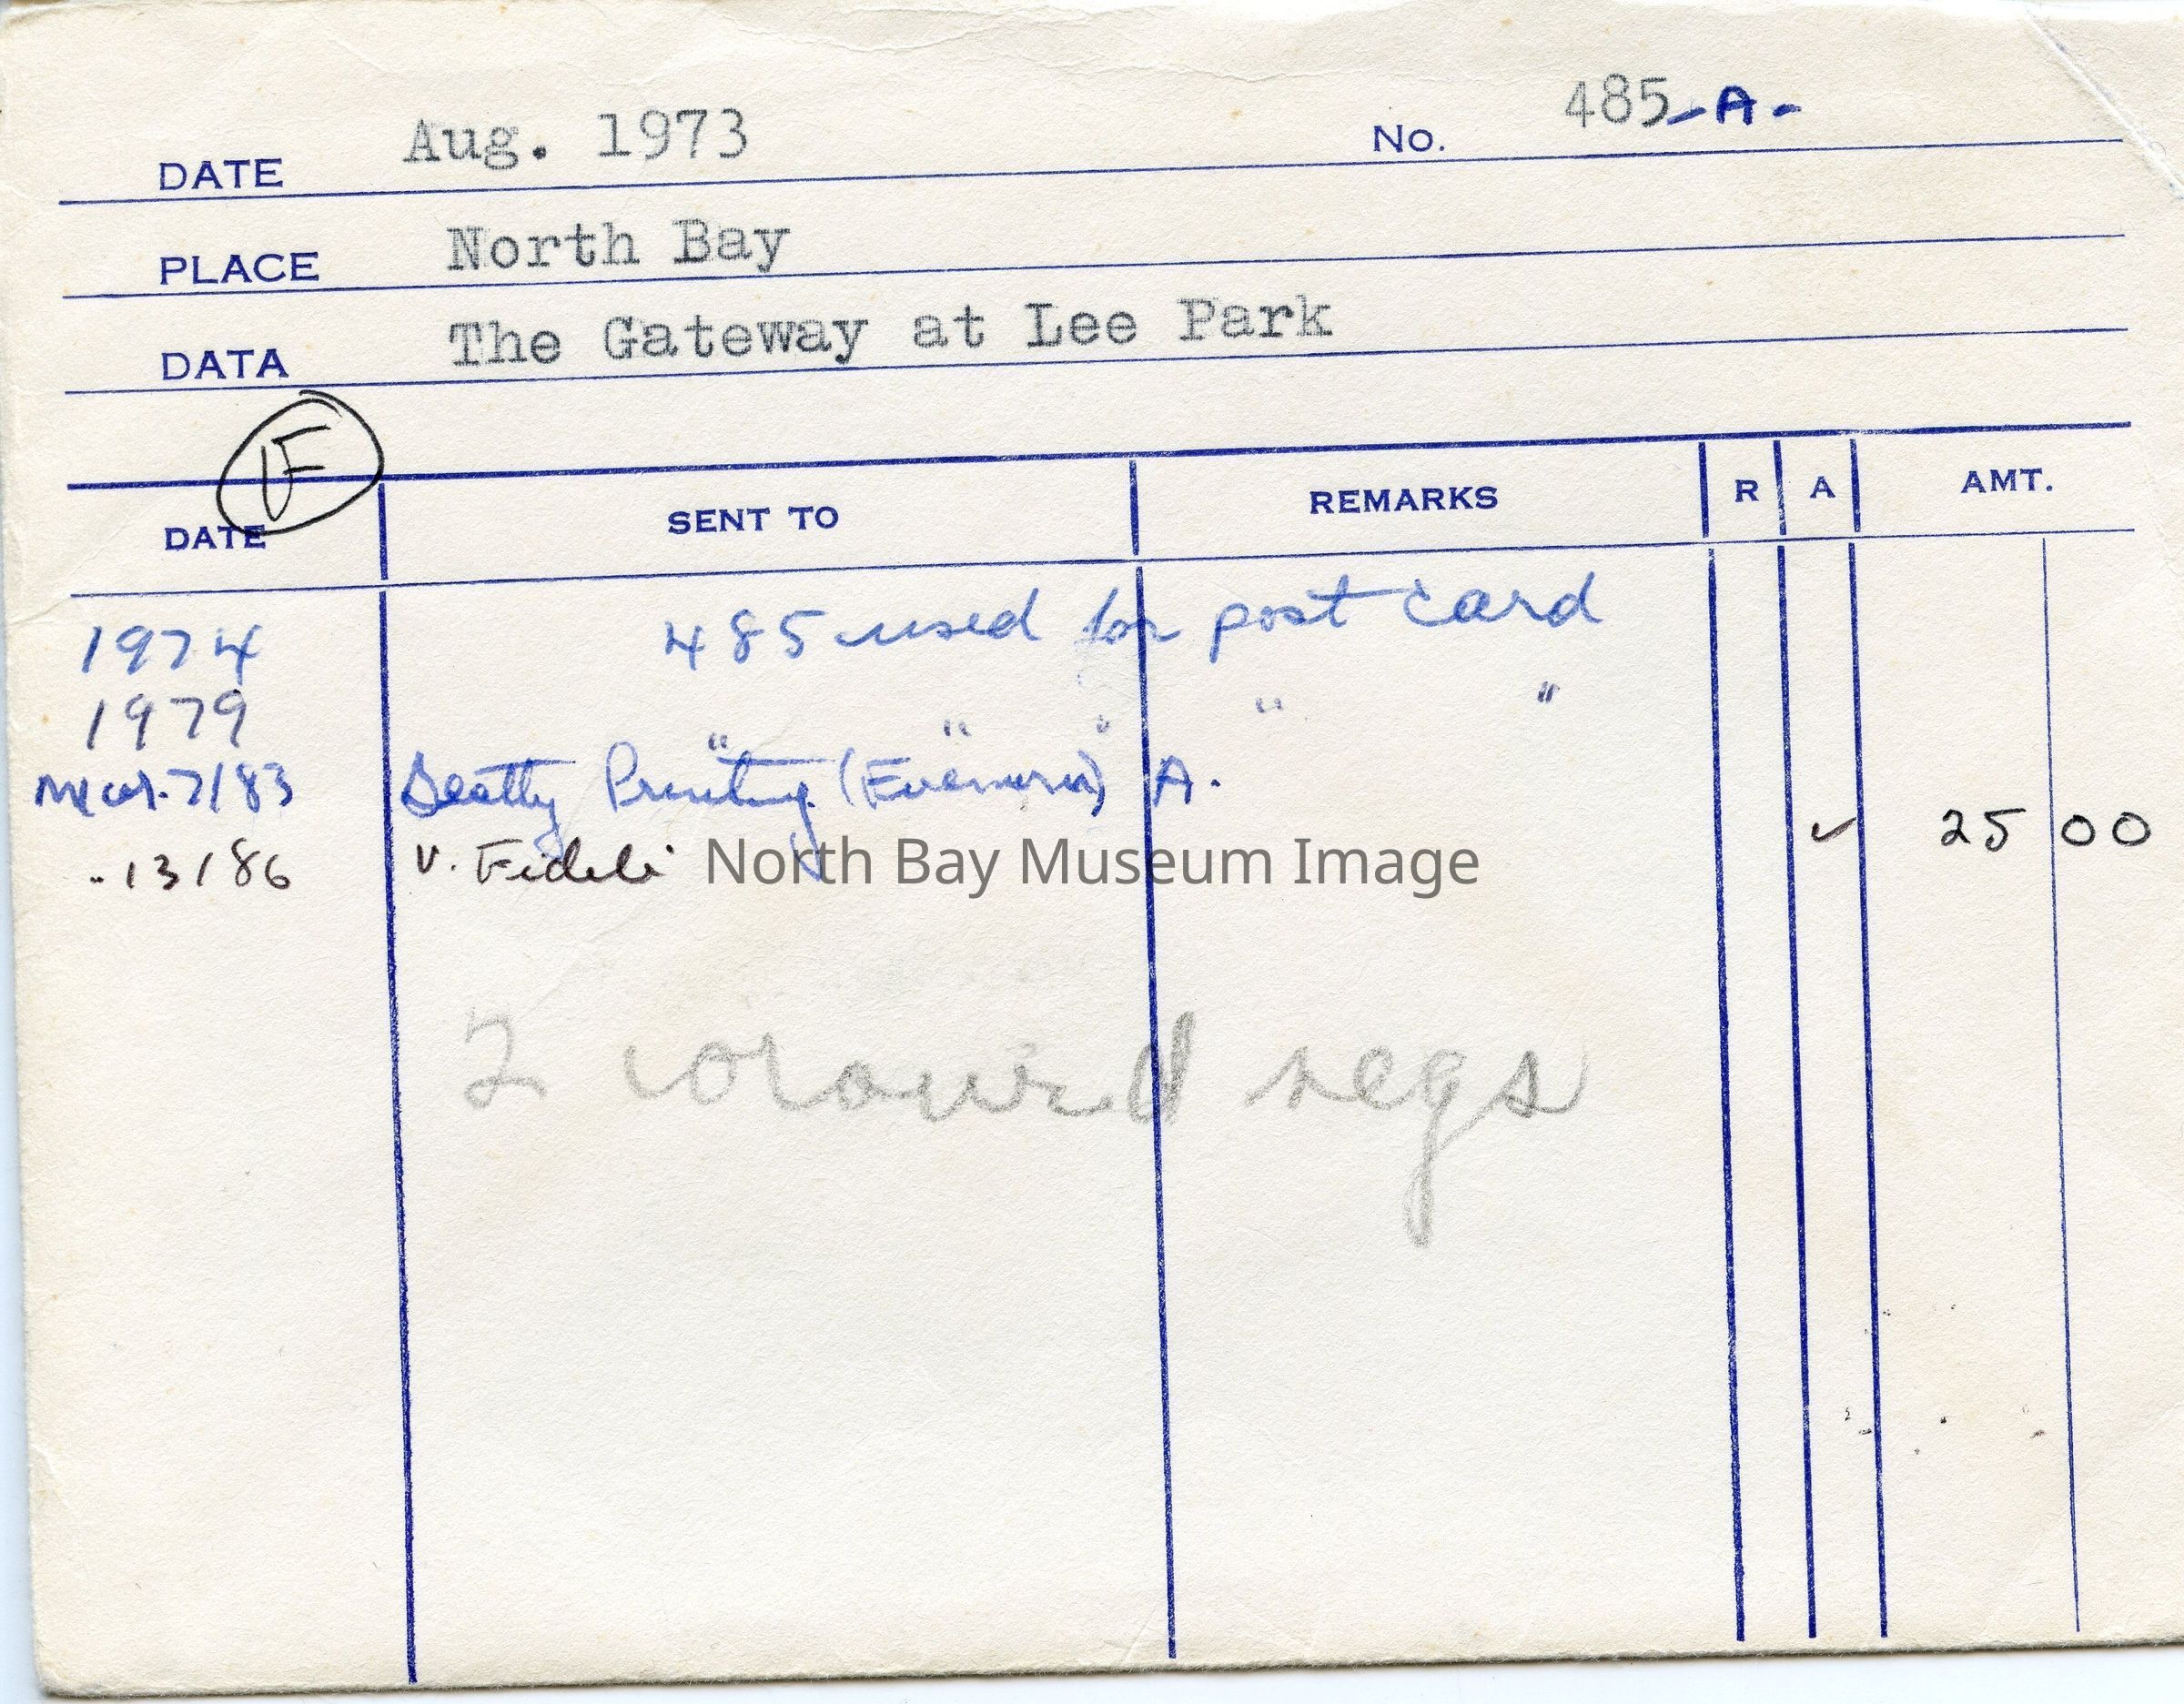 485-A-
Aug. 1973
No.
DATE
PLACE North Bay
DATA The Gateway at Lee Park
DATE SENT TO REMARKS R A AMT.
1974 485 used for post card
1979 " " " " "
Mar. 7/83 Beatty Printing A.
" 13/86 V. Fideli ✓ 25 00
North Bay Museum Image
2 coloured negs